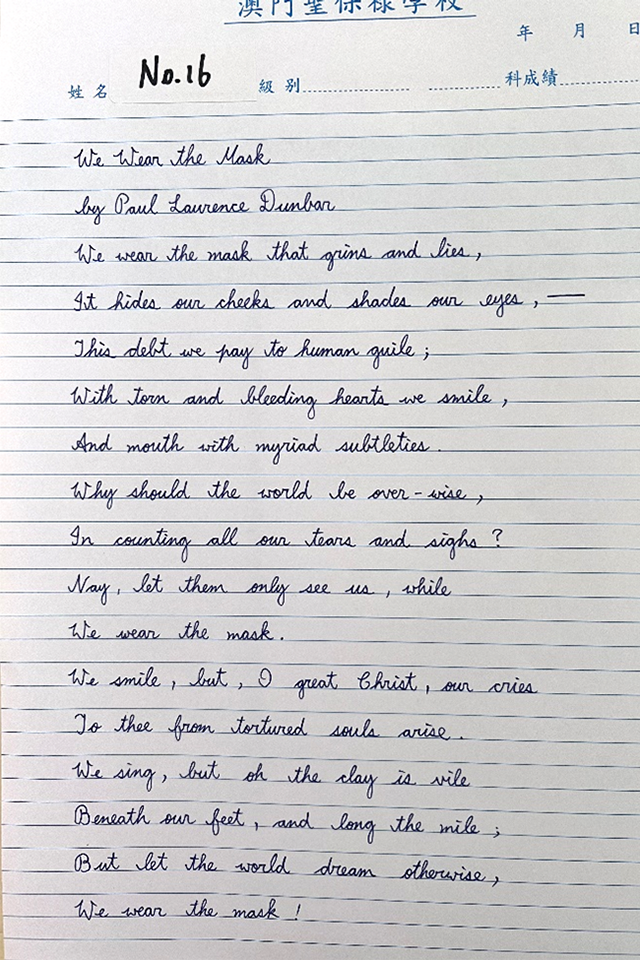 澳門聖保祿學校
年 月 日
姓名 No.16 級別 科成績
We Wear the Mask
by Paul Laurence Dunbar
We wear the mask that grins and lies,
It hides our cheeks and shades our eyes, —
This debt we pay to human guile;
With torn and bleeding hearts we smile,
And mouth with myriad subtleties.
Why should the world be over-wise,
In counting all our tears and sighs?
Nay, let them only see us, while
We wear the mask.
We smile, but, O great Christ, our cries
To thee from tortured souls arise.
We sing, but oh the clay is vile
Beneath our feet, and long the mile;
But let the world dream otherwise,
We wear the mask!